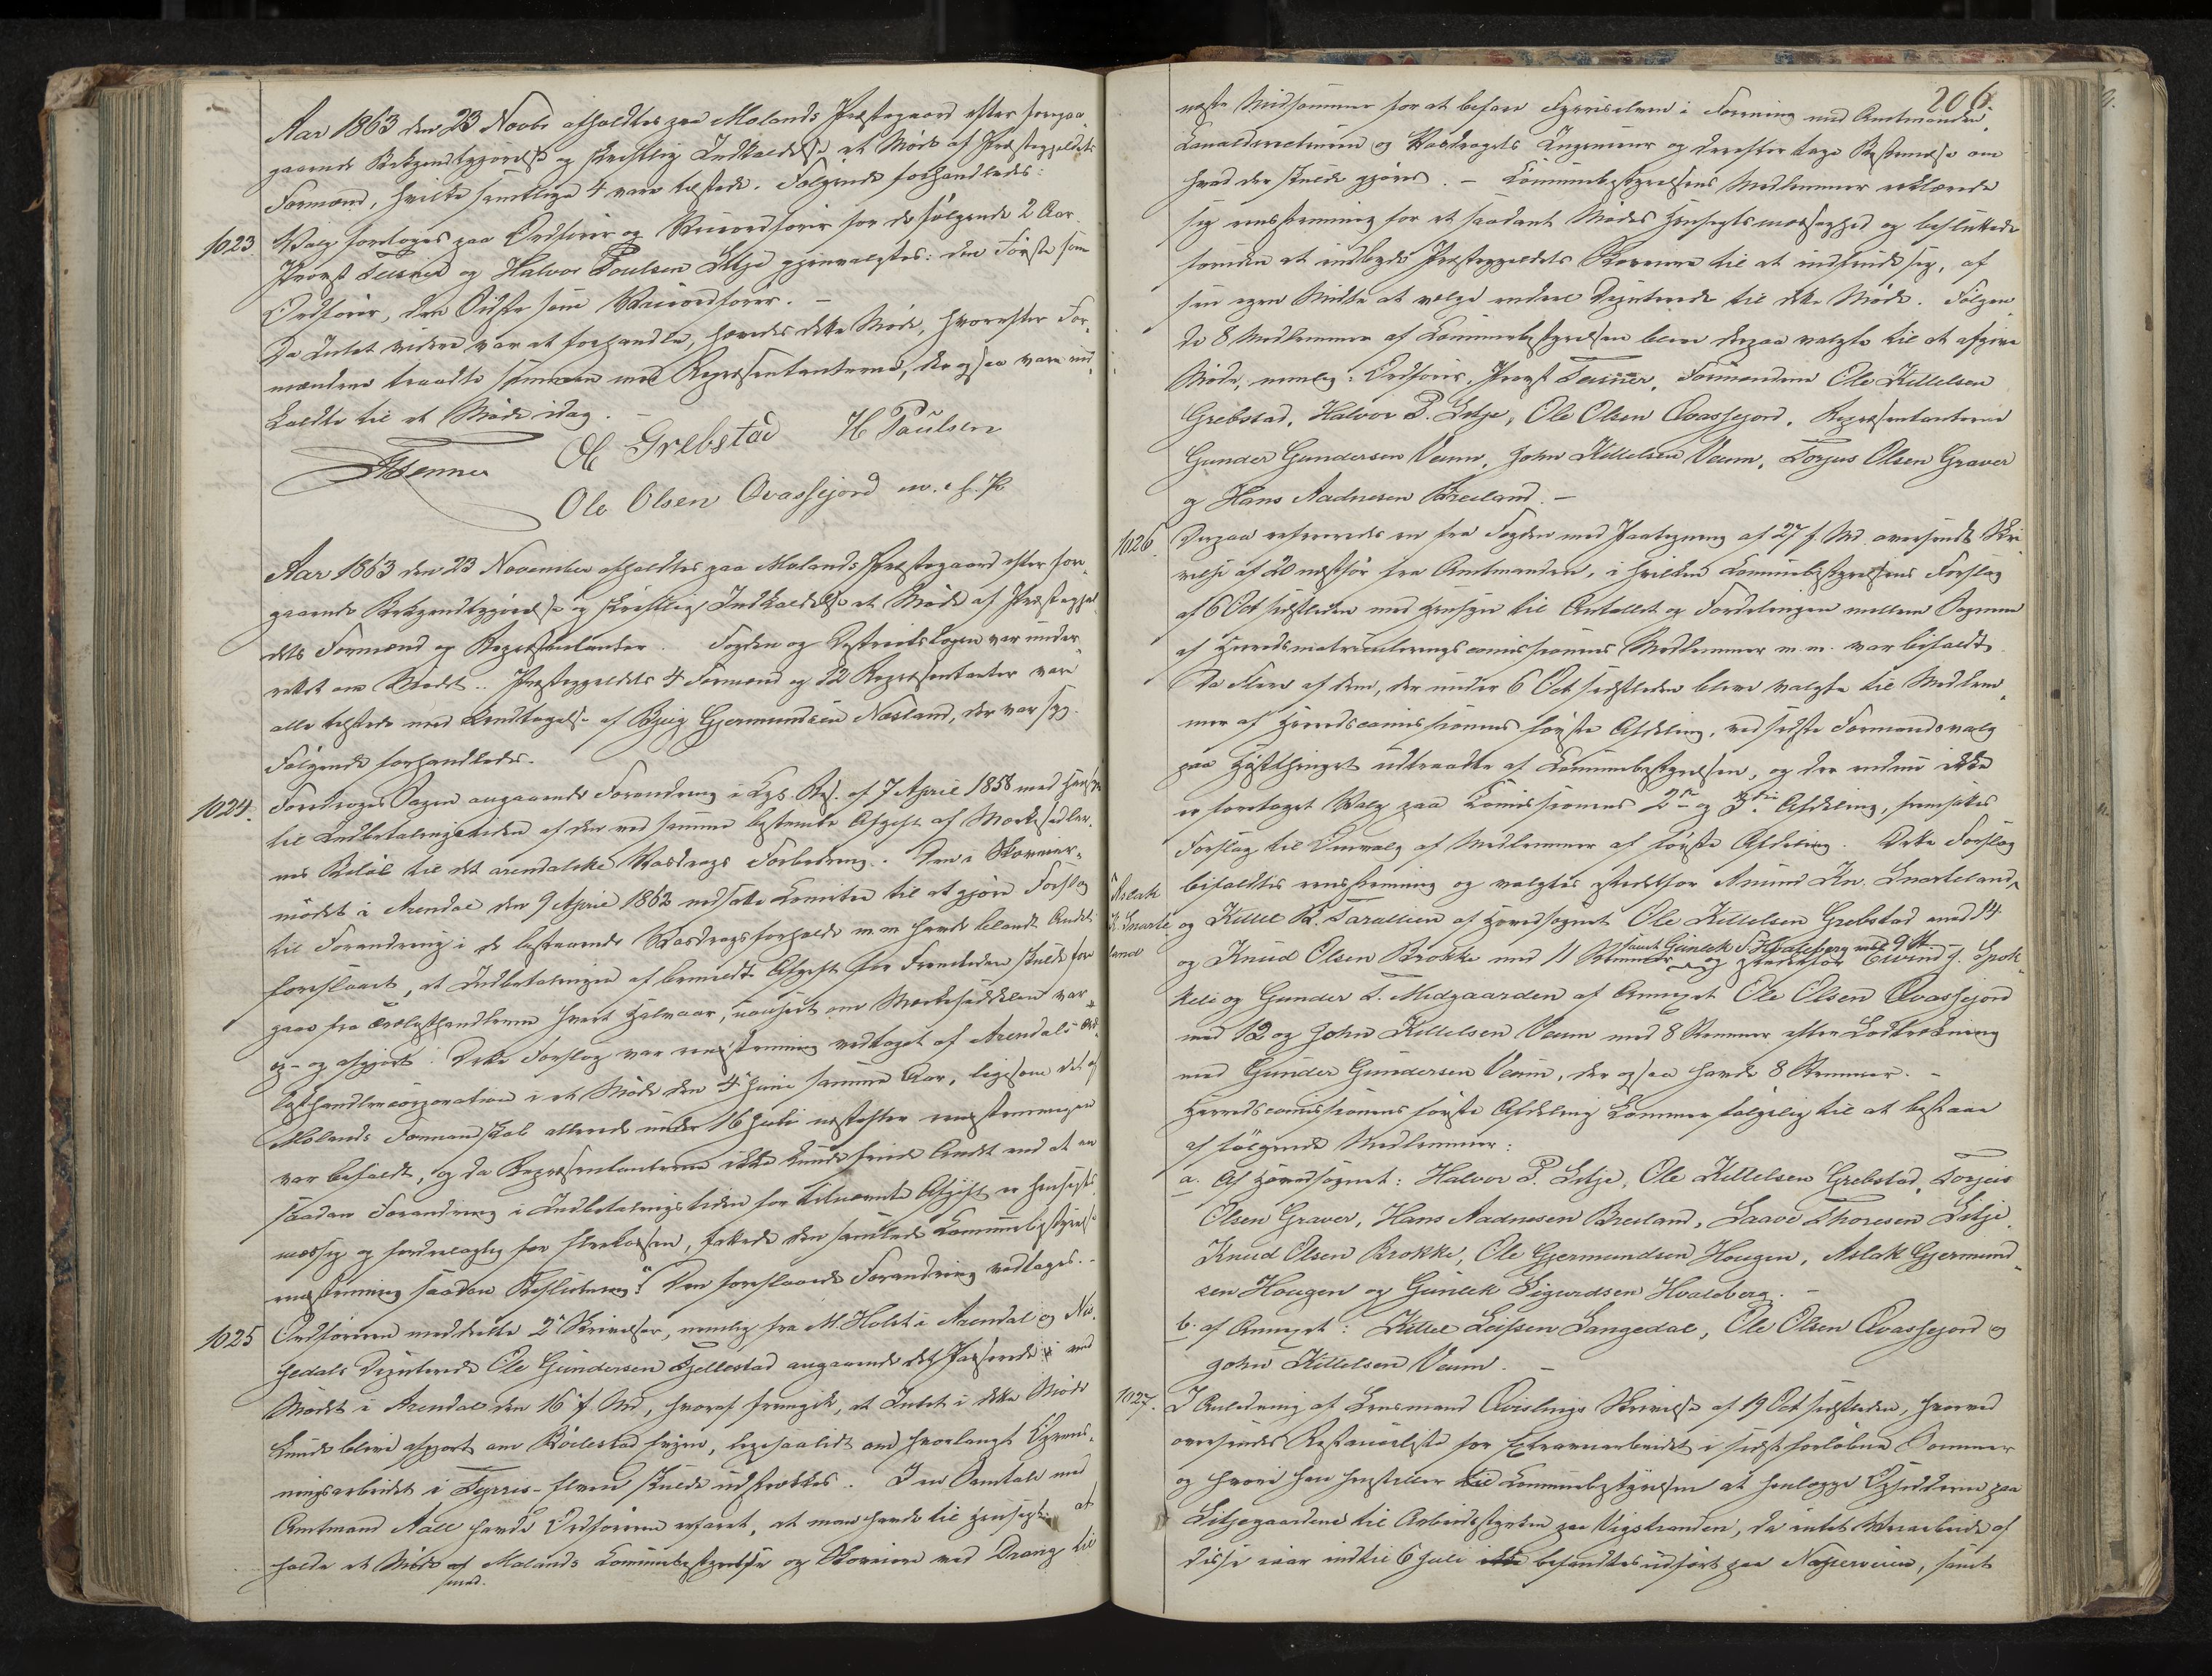 Aar 1863 den 23 Novbr afholdtes paa Molands Præstegaard efter foregaa„
gaaende Bekjendtgjørelse og skriftlig Indkaldelse et Møde af Præstegjeldets
Formænd, hvilke samtlige 4 vare tilstede. Følgende forhandledes:
1023. Valg foretoges paa Ordfører og Viceordfører for de følgende 2 Aar.
Provst Tuxner og Halvor Poulsen Litje gjenvalgtes: den Første som
Ordfører, den Sidste som Viceordfører. –
Da Intet videre var at forhandle, hævedes dette Møde, hvorefter For„
mændene traadte sammen med Repræsentanterne, der ogsaa vare ind„
kaldte til et Møde idag. –
OK Grebstad H Paulsen
Ole Olsen Qvassejord m. i h. P.
Aar 1863 den 23 November afholdtes paa Molands Præstegaard efter fore„
gaaende Bekjendtgjørelse og skriftlig Indkaldelse et Møde af Præstegjel„
dets Formænd og Repræsentanter. Fogden og Distriktslægen var under„
rettet om Mødet. Præstegjeldets 4 Formænd og 12 Repræsentanter vare
alle tilstede med Undtagelse af Bjug Gjermundsen Næsland, der var syg.
Følgende forhandledes.
1024. Foredroges Sagen angaaende Forandring i Kgl. Res. af 7 April 1858 med Hensyn
til Indbetalingstiden af den ved samme bestemte Afgift af Mærkesedler„
nes Beløb til det arendalske Vasdrags Forbedring. Den i Skoveier„
mødet i Arendal den 9 April 1862 nedsatte Komitee til at gjøre Forslag
til Forandring i de bestaaende Vasdragsforholde m.m. havde blandt Andet
foreslaaet, at Indbetalingen af bemeldte Afgift for Fremtiden skulde fore„
gaae fra Trælasthandlerne hvert Halvaar, uanseet om Mærkesedlen var
eg- og afgjort. Dette Forslag var eenstemmig vedtaget af Arendals Træ„
lasthandlercorporation i et Møde den 4 Juni samme Aar, ligesom det af
Molands Formandskab allerede under 16 Juli næstefter eenstemmigen
var bifaldt, og da Repræsentanterne ikke kunde finde Andet end at en
saadan Forandring i Indbetalingstiden for tilnævnte Afgift er hensigts„
mæssig og fordelagtig for Fløtkassen, fattede den samlede Kommunebestyrelse
eenstemmig saadan Beslutning: "Den foreslaaede Forandring vedtages. –
1025 Ordføreren meddeelte 2de Skrivelser, nemlig fra M. Holst i Arendal og Nis„
sedals Deputerede Ole Gundersen Fjellestad angaaende det Passerede ved
Mødet i Arendal den 16 f. Md, hvoraf fremgik, at Intet i dette Møde
kunde blive afgjort om Bøilestad Lægen, ligesaalidt om hvorlangt Oprens„
ningsarbeidet i Fyrris-Elven skulde udstrækkes. I en Samtale med
Amtmand Aall havde Ordføreren erfaret, at man havde til Hensigt at
holde et Møde af Molands Kommunebestyrelse og Skoveiere ved Drang til
med.
206.
næste Midsommer for at befare Fyrriselven i Forening med Amtmanden,
Canaldirecteuren og Vasdragets Ingenieur og derefter tage Bestemmelse om
hvad der skulde gjøres. – Kommunebestyrelsens Medlemmer erklærede
sig eenstemmig for et saadant Mødes Hensigtsmæssighed og besluttede
foruden at indbyde Præstegjeldets Skoveiere til at indfinde sig, af
sin egen Midte at vælge endeel Deputerede til dette Møde. Følgen„
de 8 Medlemmer af Kommunebestyrelsen bleve derpaa valgte til at afgive
Møde, nemlig: Ordfører, Provst Tuxner, Formændene Ole Kittelsen
Grebstad, Halvor P. Litje, Ole Olsen Qvassejord, Repræsentanterne
Gunder Gundersen Veum, John Kittelsen Veum, Torjus Olsen Graver
og Hans Aadnesen Breiland. –
1026. Derpaa refereredes en fra Fogden med Paategning af 27 f. Md. oversendt Skri
velse af 20 næstfør fra Amtmanden, i hvilken Kommunebestyrelsens Forslag
af 6 Oct sidstleden med Hensyn til Antallet og Fordelingen mellem Sognene
af Herredsmatriculeringscomissionens Medlemmer m.m. var bifaldt.
Da Flere af dem, der under 6 Oct sidstleden bleve valgte til Medlem„
mer af Herredscomissionens første Afdeling, ved sidste Formandsvalg
paa Høstthinget udtraadte af Kommunebestyrelsen, og der endnu ikke
er foretaget Valg paa Comissionens 2den og 3die Afdeling, fremsattes
Forslag til Omvalg af Medlemmer af første Afdeling. Dette Forslag
Aslak
K. Snarte
land
bifaldtes eenstemmig og valgtes istedetfor Amund Kn. Snarteland,
og Kittel B. Taraldlien af Hovedsognet Ole Kittelsen Grebstad med 14
og Knud Olsen Brokke med 11 Stemmer samt Gunlek S. Hvaleberg med 9 St. og istedetfor Eivind J. Spok„
keli og Gunder T. Midgaarden af Annexet Ole Olsen Qvassejord
med 12 og John Kittelsen Veum med 8 Stemmer efter Lodtrækning
med Gunder Gundersen Veum, der ogsaa havde 8 Stemmer. –
Herredscomissionens første Afdeling kommer følgelig til at bestaae
af følgende Medlemmer:
a. Af Hovedsognet: Halvor P. Litje, Ole Kittelsen Grebstad, Torjus
Olsen Graver, Hans Aadnesen Breiland, Saave Thoresen Litje,
Knud Olsen Brokke, Ole Gjermundsen Hougen, Aslak Gjermund„
sen Hougen og Gunlek Sigurdsen Hvaleberg. –
b. af Annexet: Kittel Leifsen Langedal, Ole Olsen Qvassejord og
John Kittelsen Veum. –
1027. I Anledning af Lensmand Qvislings Skrivelse af 19 Oct sidstleden, hvorved
oversendes Restanceliste for Extraveiarbeidet i sidst forløbne Sommer
og hvori han henstiller til Kommunebestyrelsen at henlægge Opsidderne paa
Litjegaardene til Arbeidsstykket paa Vigstranden, da intet Veiarbeide af
disse iaar indtil 6 Juli befandtes udført paa Napperveien, samt